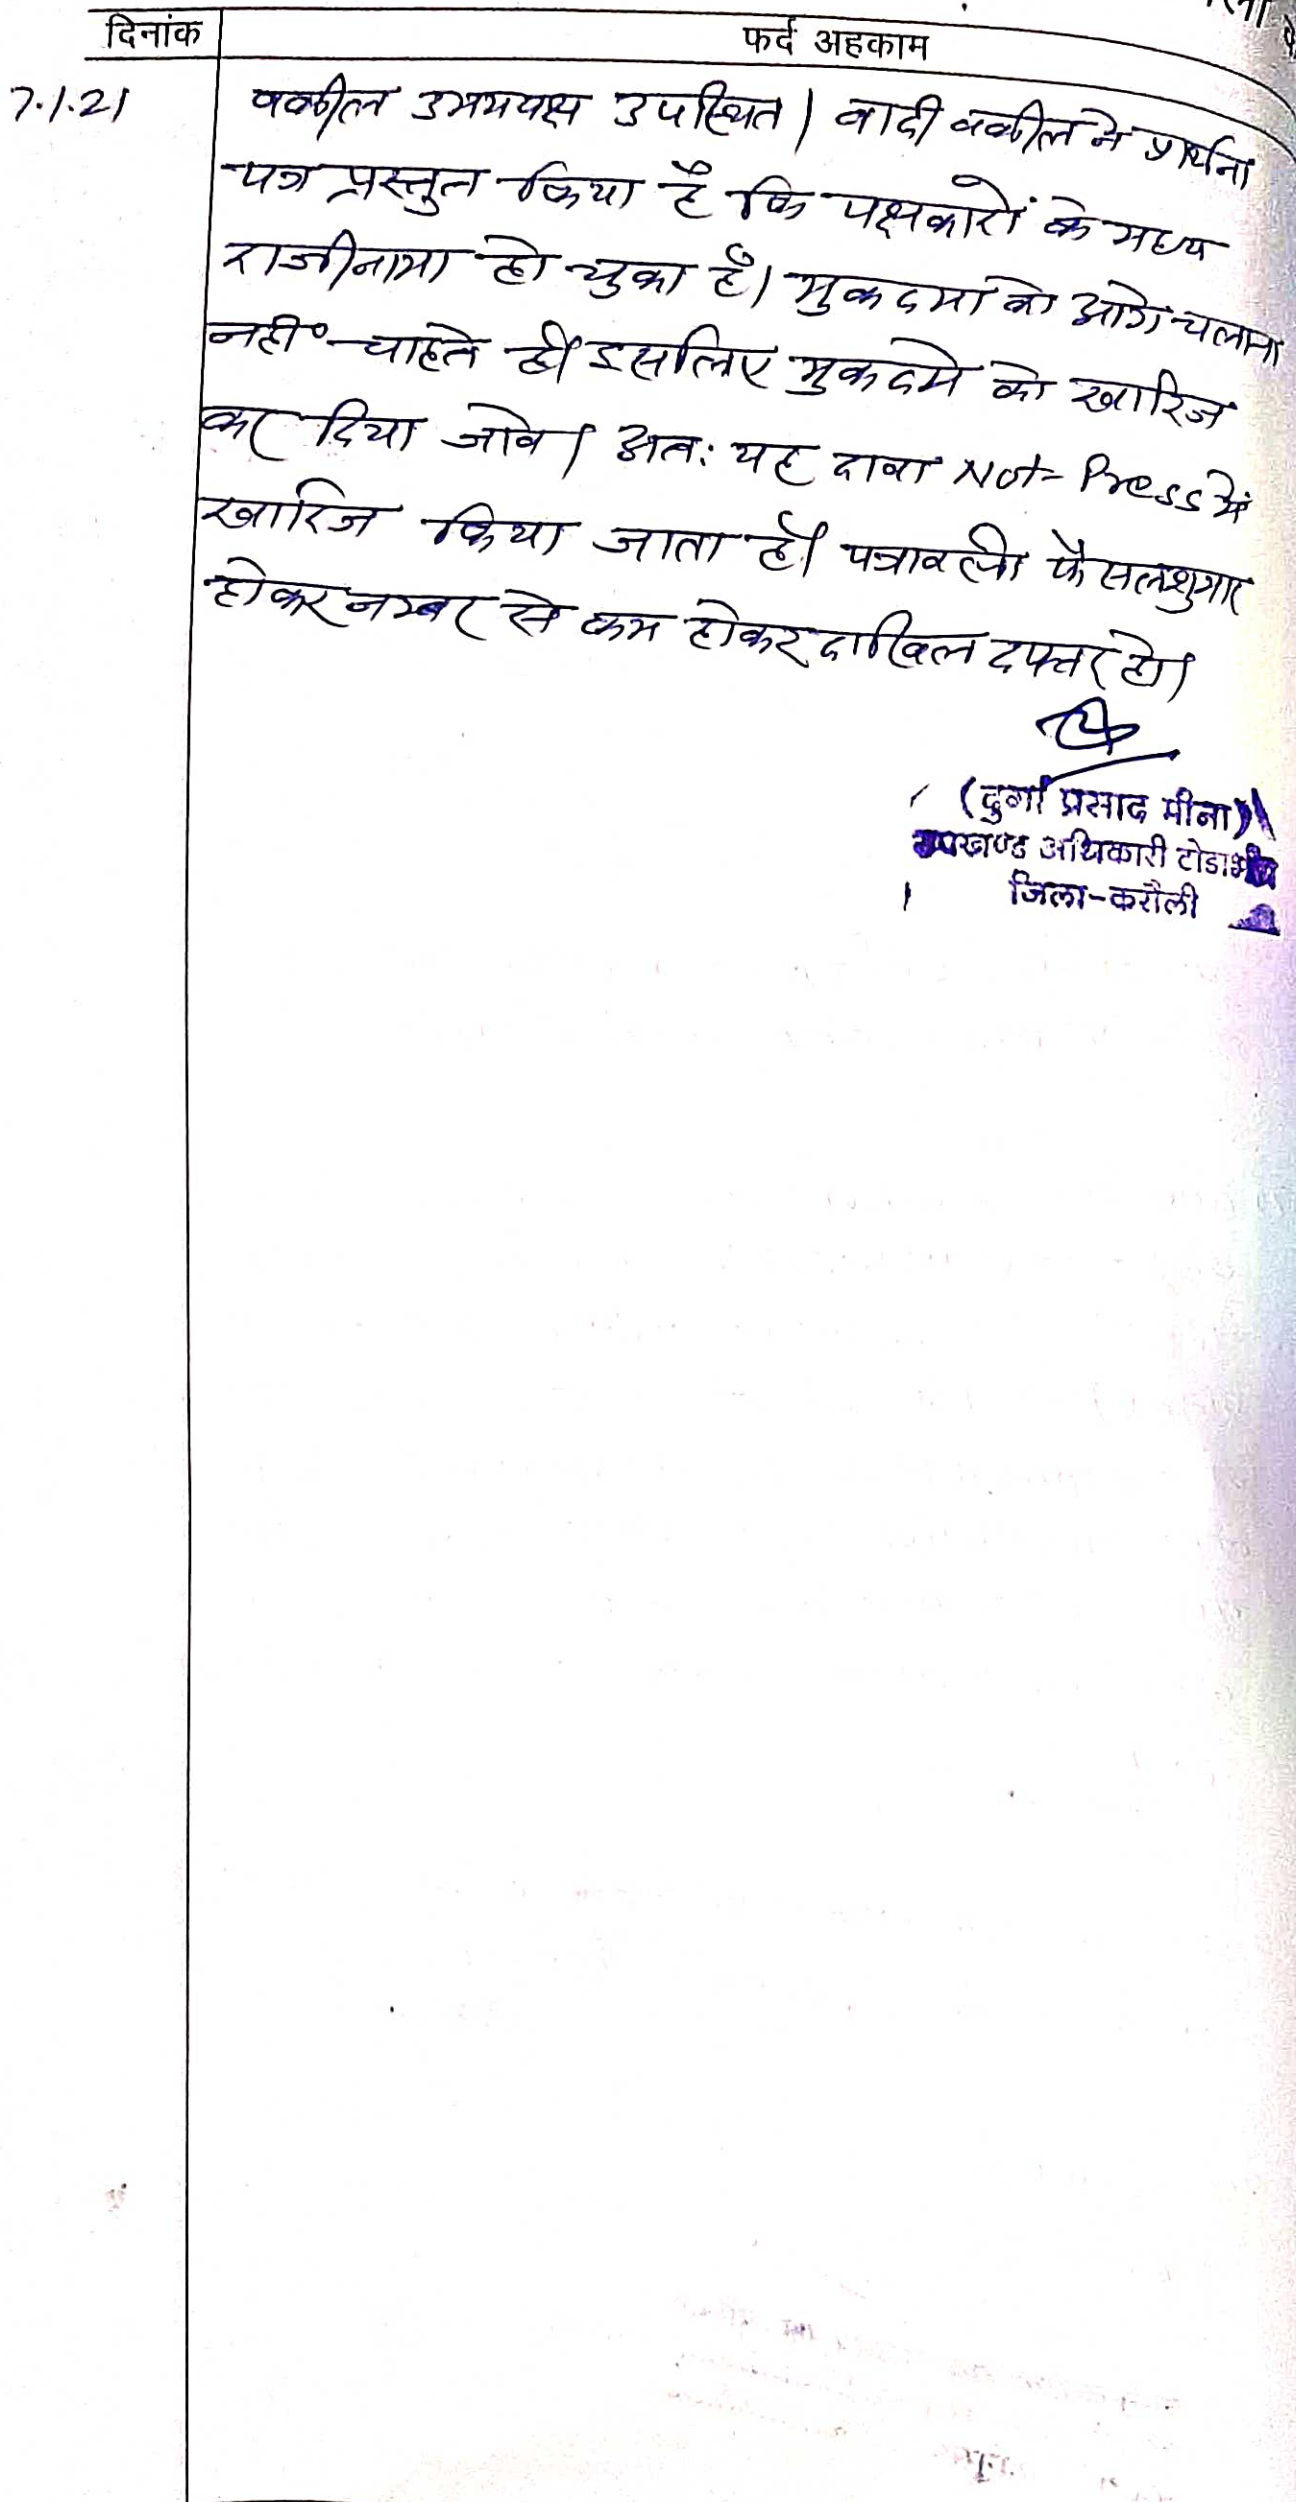 दिनांक फर्द अहकाम
7.1.21 वकील उभयपक्ष उपस्थित। वादी वकील ने प्रार्थना
पत्र प्रस्तुत किया है कि पक्षकारों के मध्य
राजीनामा हो चुका है। मुकदमा को आगे चलाना
नहीं चाहते है। इसलिए मुकदमे को खारिज
कर दिया जावे। अतः यह दावा Not-Press में
खारिज किया जाता है। पत्रावली फैसलशुमार
होकर नम्बर से कम होकर दाखिल दफ्तर हो।
(दुर्गा प्रसाद मीना)
उपखण्ड अधिकारी टोडाभीम
जिला-करौली